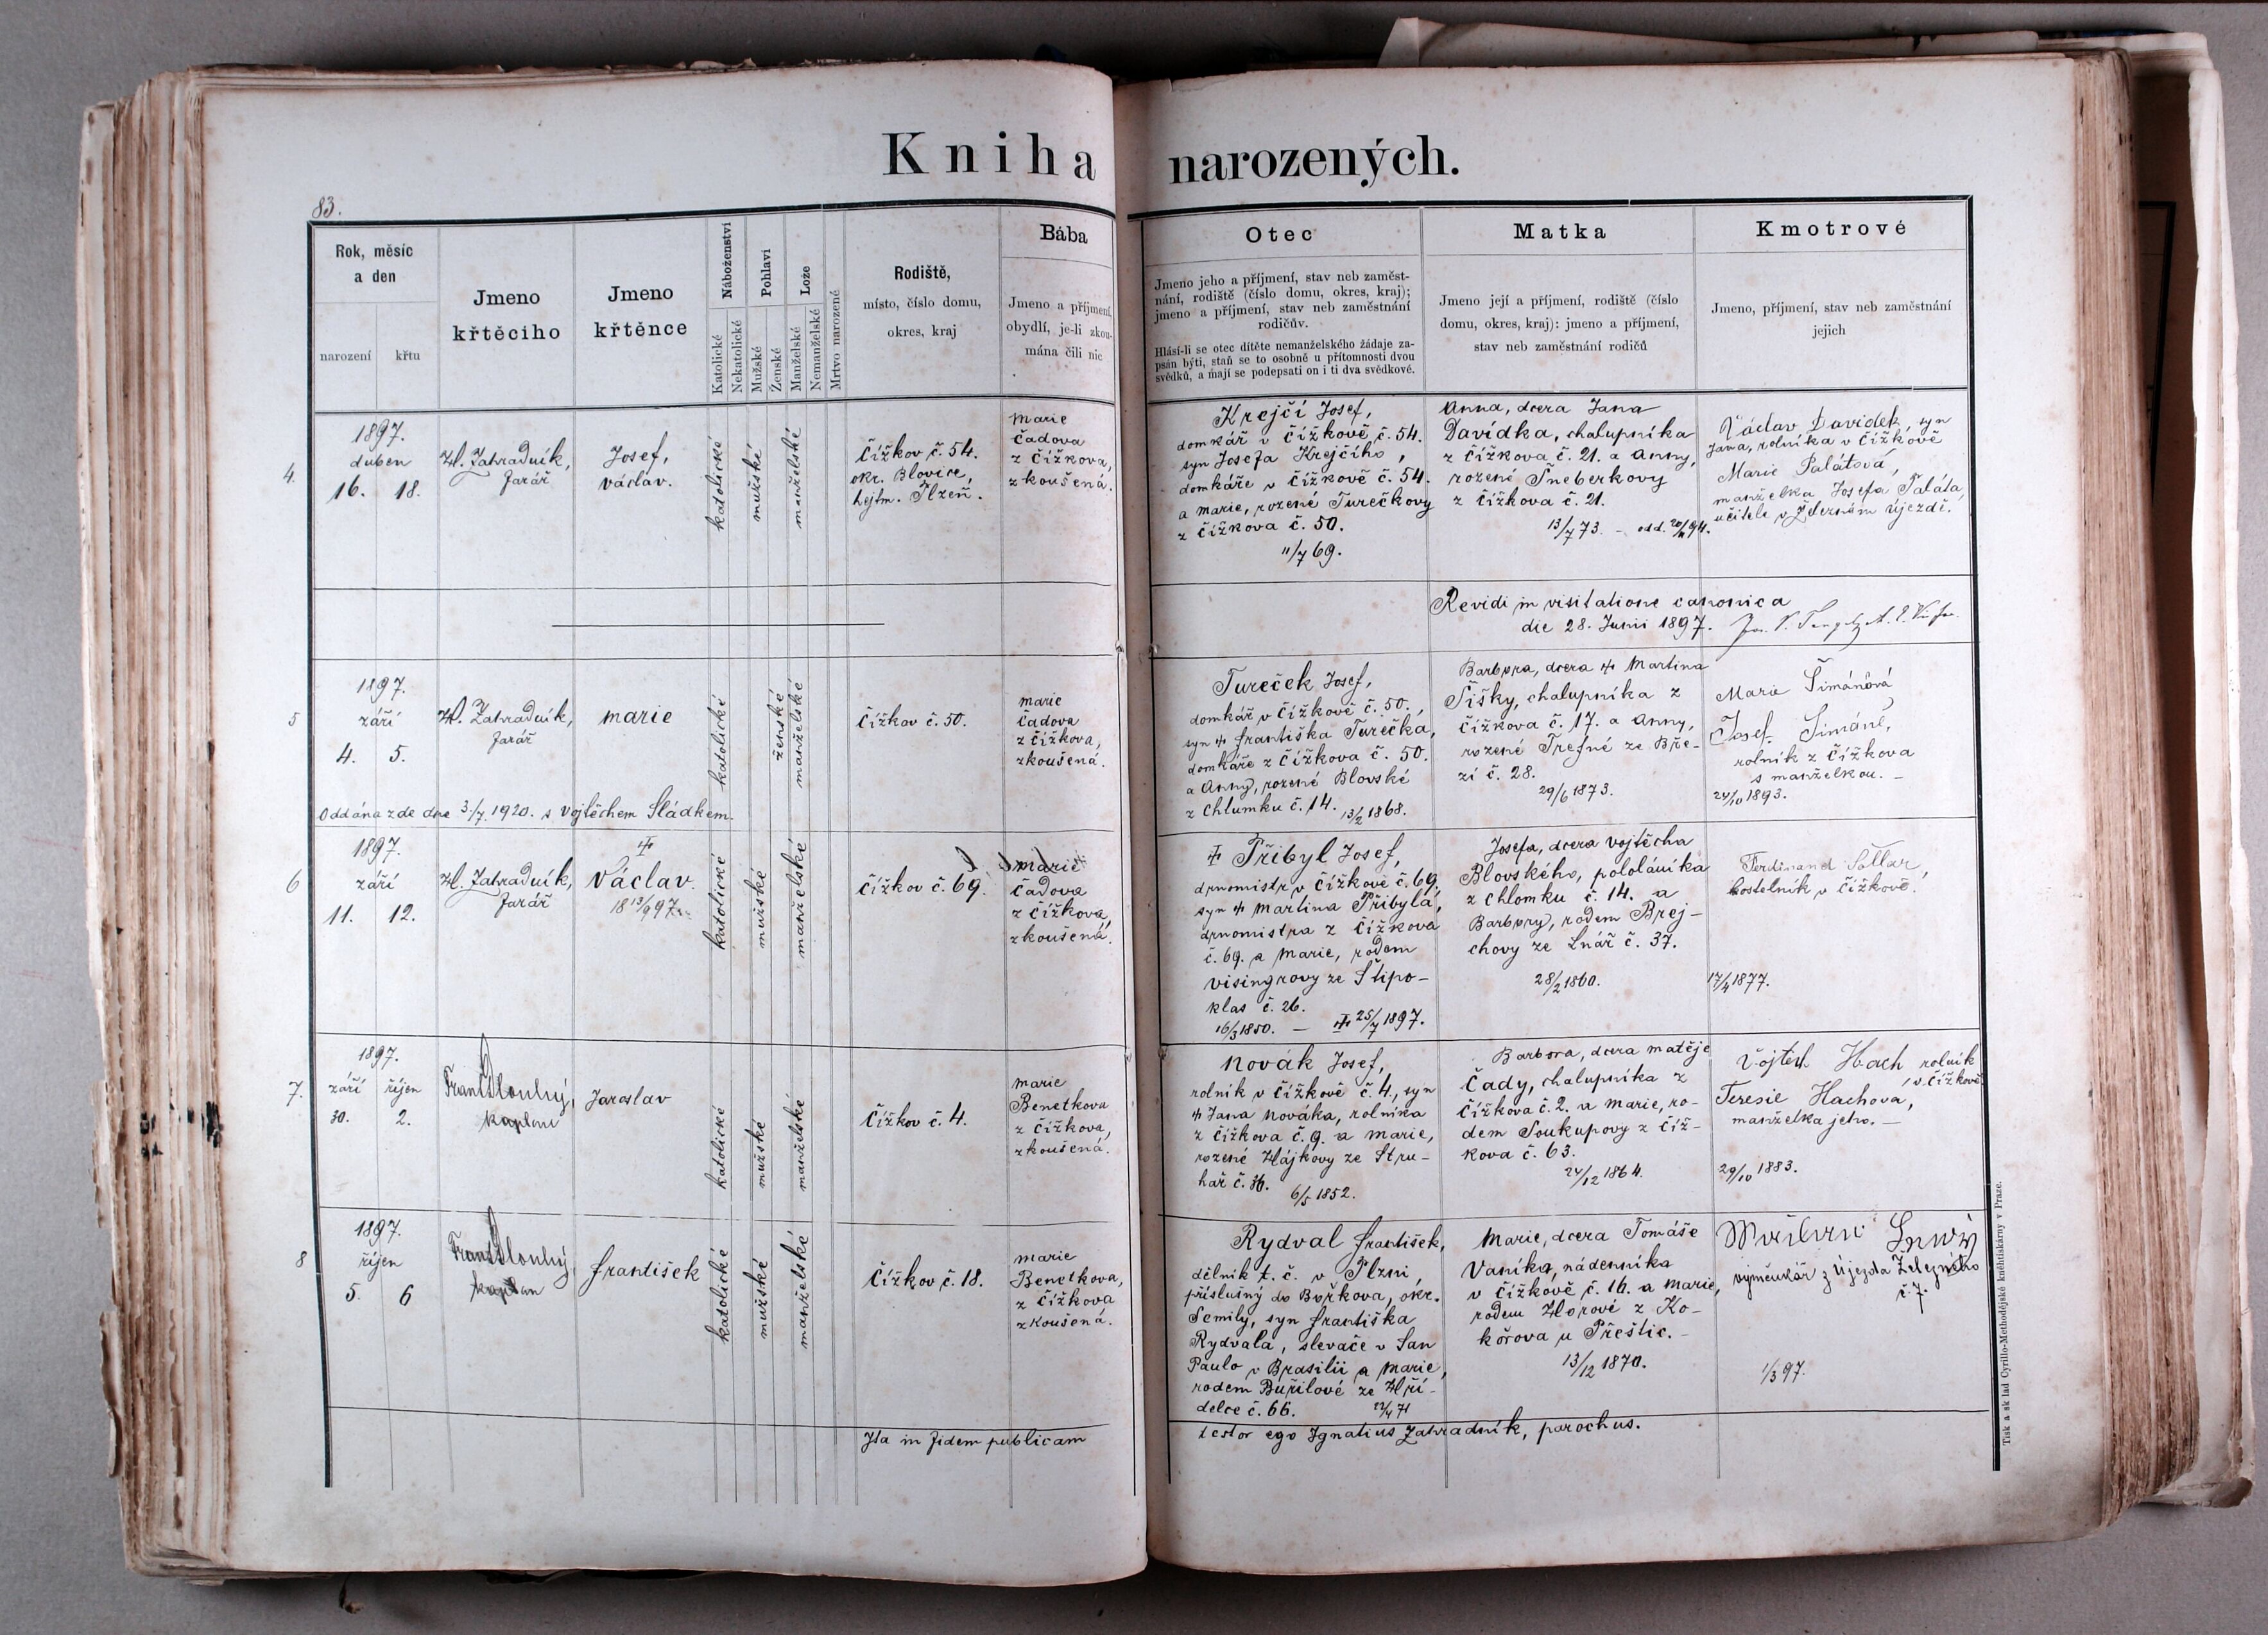 Kniha narozených.
83.
Rok, měsíc
a den
narození křtu
Jmeno
křtěcího
Jmeno
křtěnce
Náboženství
Katolické
Nekatolické
Pohlaví
Mužské
Ženské
Lože
Manželské
Nemanželské
Mrtvo narozené
Rodiště,
místo, číslo domu,
okres, kraj
Bába
Jmeno a příjmení,
obydlí, je-li zkou-
mána čili nic
Otec
Jmeno jeho a příjmení, stav neb zaměst-
nání, rodiště (číslo domu, okres, kraj);
jmeno a příjmení, stav neb zaměstnání
rodičův.
Hlásí-li se otec dítěte nemanželského žádaje za-
psán býti, staň se to osobně u přítomnosti dvou
svědků, a mají se podepsati on i ti dva svědkové.
Matka
Jmeno její a příjmení, rodiště (číslo
domu, okres, kraj): jmeno a příjmení,
stav neb zaměstnání rodičů
Kmotrové
Jmeno, příjmení, stav neb zaměstnání
jejich
4.
1897.
duben
16. 18.
Zahradník,
farář
Josef,
Václav.
katolické
mužské
manželské
Čížkov č. 54.
okr. Blovice,
hejtm. Plzeň.
Marie
Čadova
z Čížkova,
zkoušená.
Krejčí Josef,
domkář v Čížkově č. 54.
syn Josefa Krejčího,
domkáře v Čížkově č. 54.
a Marie, rozené Turečkovy
z Čížkova č. 50.
11/7 69.
Anna, dcera Jana
Davídka, chalupníka
z Čížkova č. 21. a Anny,
rozené Šneberkovy
z Čížkova č. 21.
13/7 73. – odd. 94.
Václav Davidek, syn
Jana, rolníka v Čížkově
Marie Palátová,
manželka Josefa Paláta,
učitele v Železném Újezdě.
Revidi in visitatione canonica
die 28. Junii 1897.
5
1897.
září
4. 5.
Zahradník,
farář
Marie
katolické
ženské
manželské
Čížkov č. 50.
Marie
Čadova
z Čížkova,
zkoušená.
Oddána zde dne 3./7. 1920. s Vojtěchem Sládkem.
Tureček Josef,
domkář v Čížkově č. 50.,
syn ✝ Františka Turečka,
domkáře z Čížkova č. 50.
a Anny, rozené Blovské
z Chlumku č. 14. 13/2 1868.
Barbora, dcera ✝ Martina
Šišky, chalupníka z
Čížkova č. 17. a Anny,
rozené Trefné ze Bře-
zí č. 28.
29/6 1873.
Marie Šimánová
Josef Šimáně,
rolník z Čížkova
s manželkou. –
24/10 1893.
6
1897.
září
11. 12.
Zahradník,
farář
✝
Václav.
18 13/9 97.
katolické
mužské
manželské
Čížkov č. 69.
Marie
Čadova
z Čížkova,
zkoušená.
✝ Přibyl Josef,
drnomistr v Čížkově č. 69.,
syn ✝ Martina Přibyla,
drnomistra z Čížkova
č. 69. a Marie, rodem
Visingrovy ze Štipo-
klas č. 26.
16/3 1850. – ✝ 25/7 1897.
Josefa, dcera Vojtěcha
Blovského, pololáníka
z Chlomku č. 14. a
Barbory, rodem Brej-
chovy ze Lnář č. 37.
28/2 1860.
Ferdinand Sollar,
kostelník v Čížkově.
17/4 1877.
7.
1897.
září říjen
30. 2.
Frant. Dlouhý,
kaplan
Jaroslav
katolické
mužské
manželské
Čížkov č. 4.
Marie
Benetkova
z Čížkova,
zkoušená.
Novák Josef,
rolník v Čížkově č. 4., syn
✝ Jana Nováka, rolníka
z Čížkova č. 9. a Marie,
rozené Hájkovy ze Stru-
hař č. 36.
6/5 1852.
Barbora, dcera Matěje
Čady, chalupníka z
Čížkova č. 2. a Marie, ro-
dem Soukupovy z Číž-
kova č. 63.
24/12 1864.
Vojtěch Hach rolník
v Čížkově
Teresie Hachova,
manželka jeho. –
29/10 1883.
8
1897.
říjen
5. 6
Frant. Dlouhý,
kaplan
František
katolické
mužské
manželské
Čížkov č. 18.
Marie
Benetkova,
z Čížkova
zkoušená.
Rydval František,
dělník t. č. v Plzni,
příslušný do Bořkova, okr.
Semily, syn Františka
Rydvala, slevače v San
Paulo v Brasilii a Marie,
rodem Buřilové ze Hří-
delce č. 66. 22/4 71
Marie, dcera Tomáše
Vaníka, nádenníka
v Čížkově č. 16. a Marie,
rodem Horové z Ko-
kořova u Přeštic. –
13/12 1870.
výměnkář z Újezda Železného
č. 7.
1/3 97.
Ita in fidem publicam
testor ego Ignatius Zahradník, parochus.
Tisk a sklad Cyrillo-Methodějské knihtiskárny v Praze.